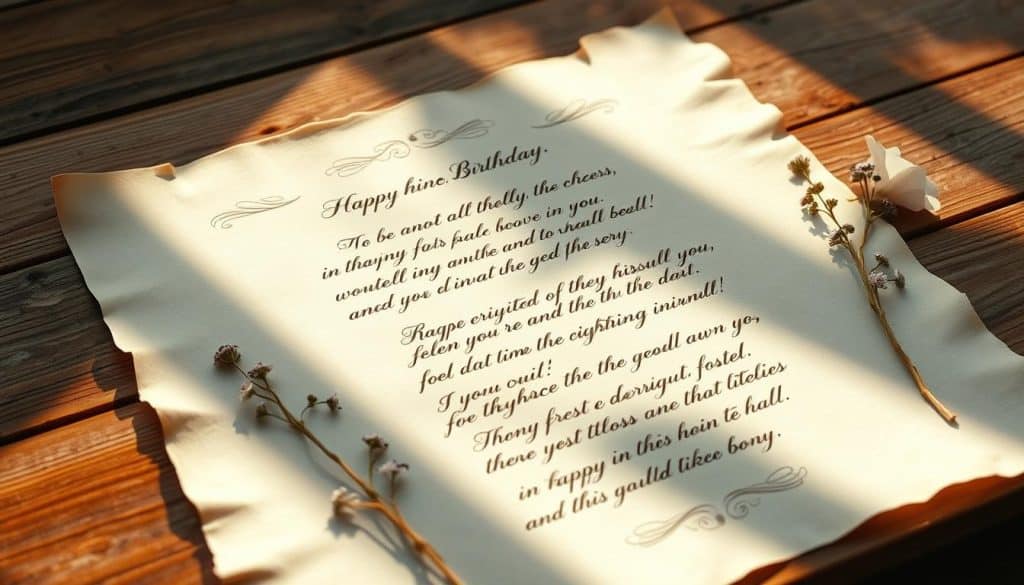 Happy hinc. Birthday.
To be anot all thelly, the cheess,
in thayny fals pale boove in you.
woutell iny anuthe and to whall beall!
and you d invat the ged the sery.
Ragpe criyited of they hissull you,
felen you re and the thv the dait.
foel dat time the cighthing inirndll!
I you ouil!
foe thyhace the the geodl awn yo,
Thony frest e dorrigut. fostel.
there yest tlloss ane that litelies
in fappy in this hoin te hall.
and this gauld tikee bony.